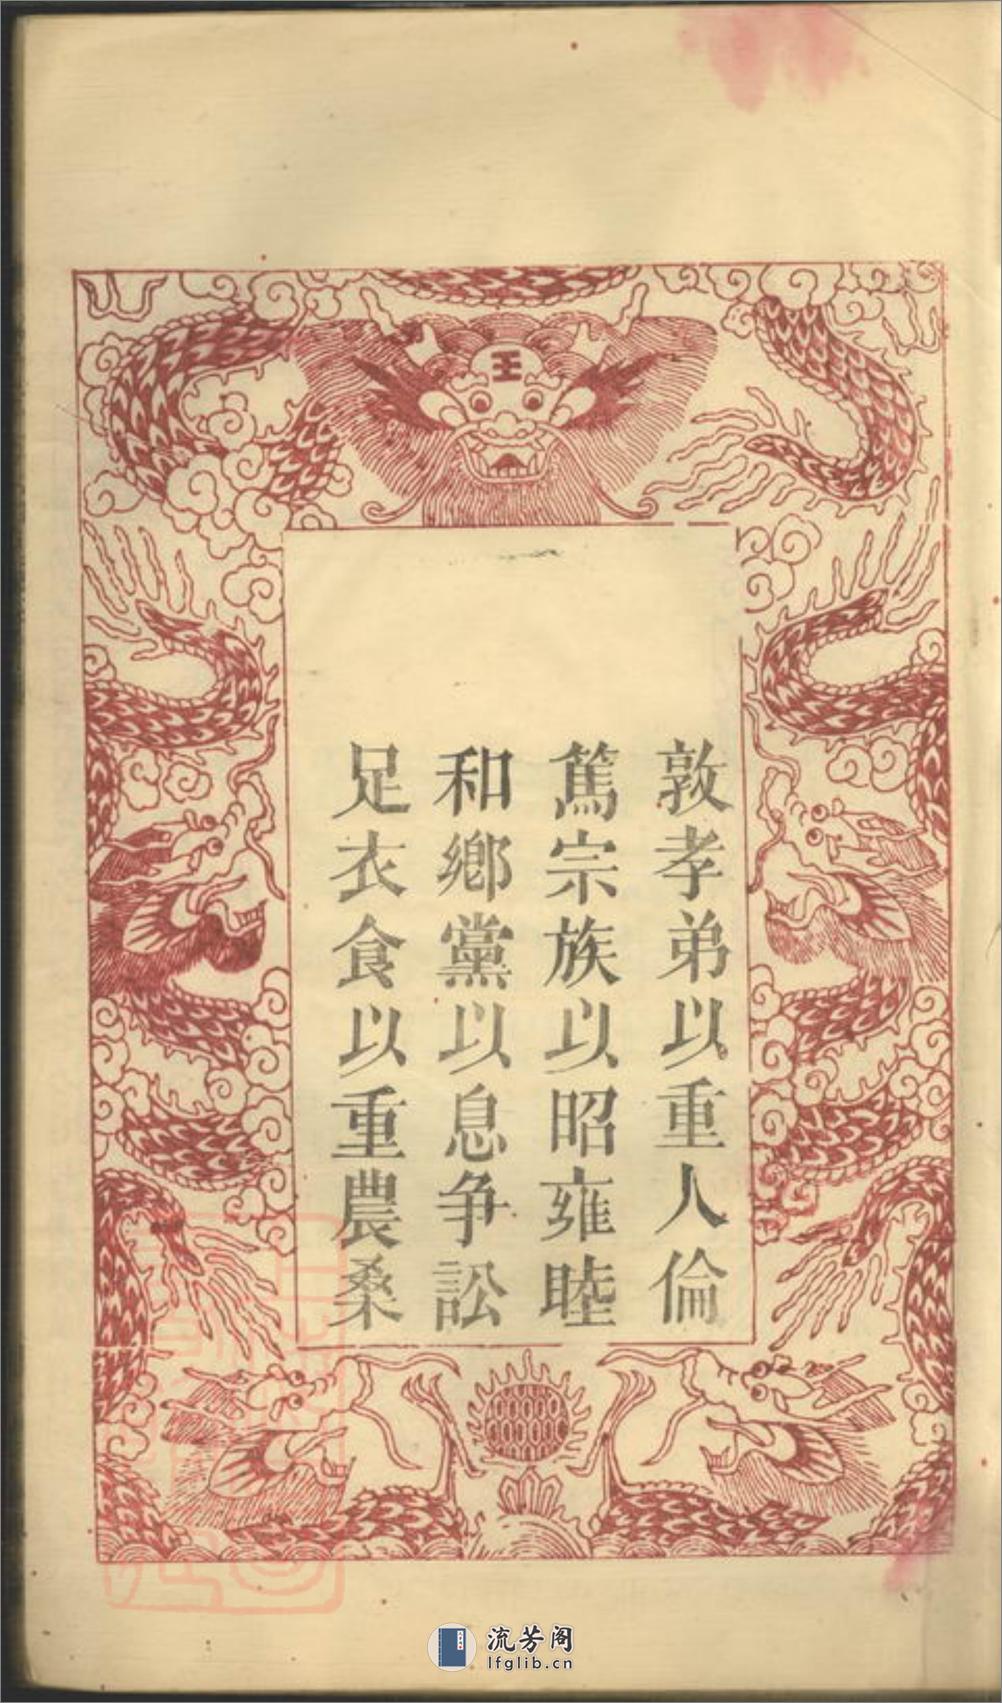 王
敦孝弟以重人倫
篤宗族以昭雍睦
和鄉黨以息争訟
足衣食以重農桑
流芳阁
lfglib.cn